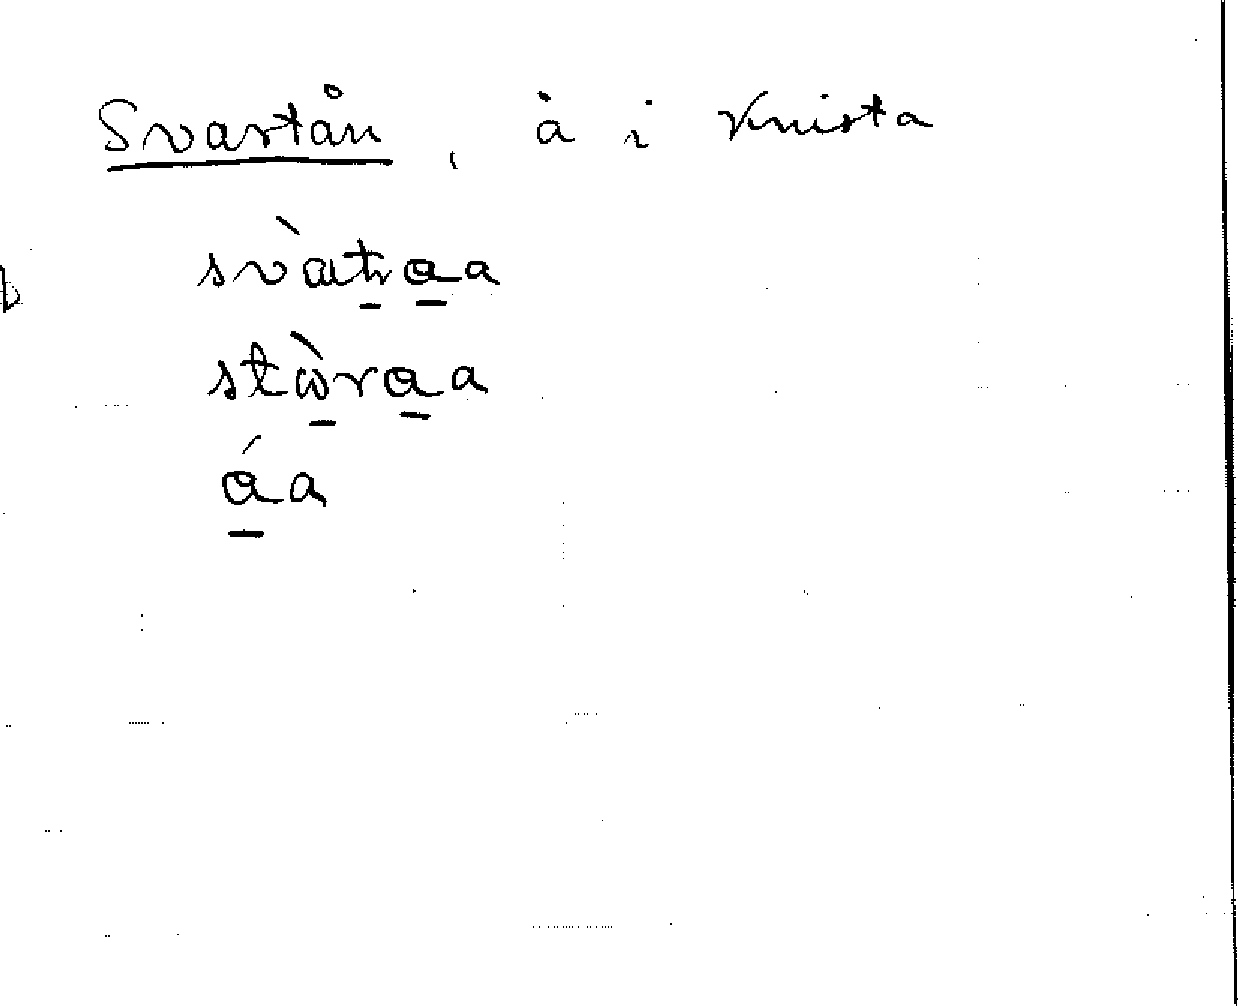 Svartån, å i Knista
svàtꞽa̲a
stὼ̲ra̲a
á̲a